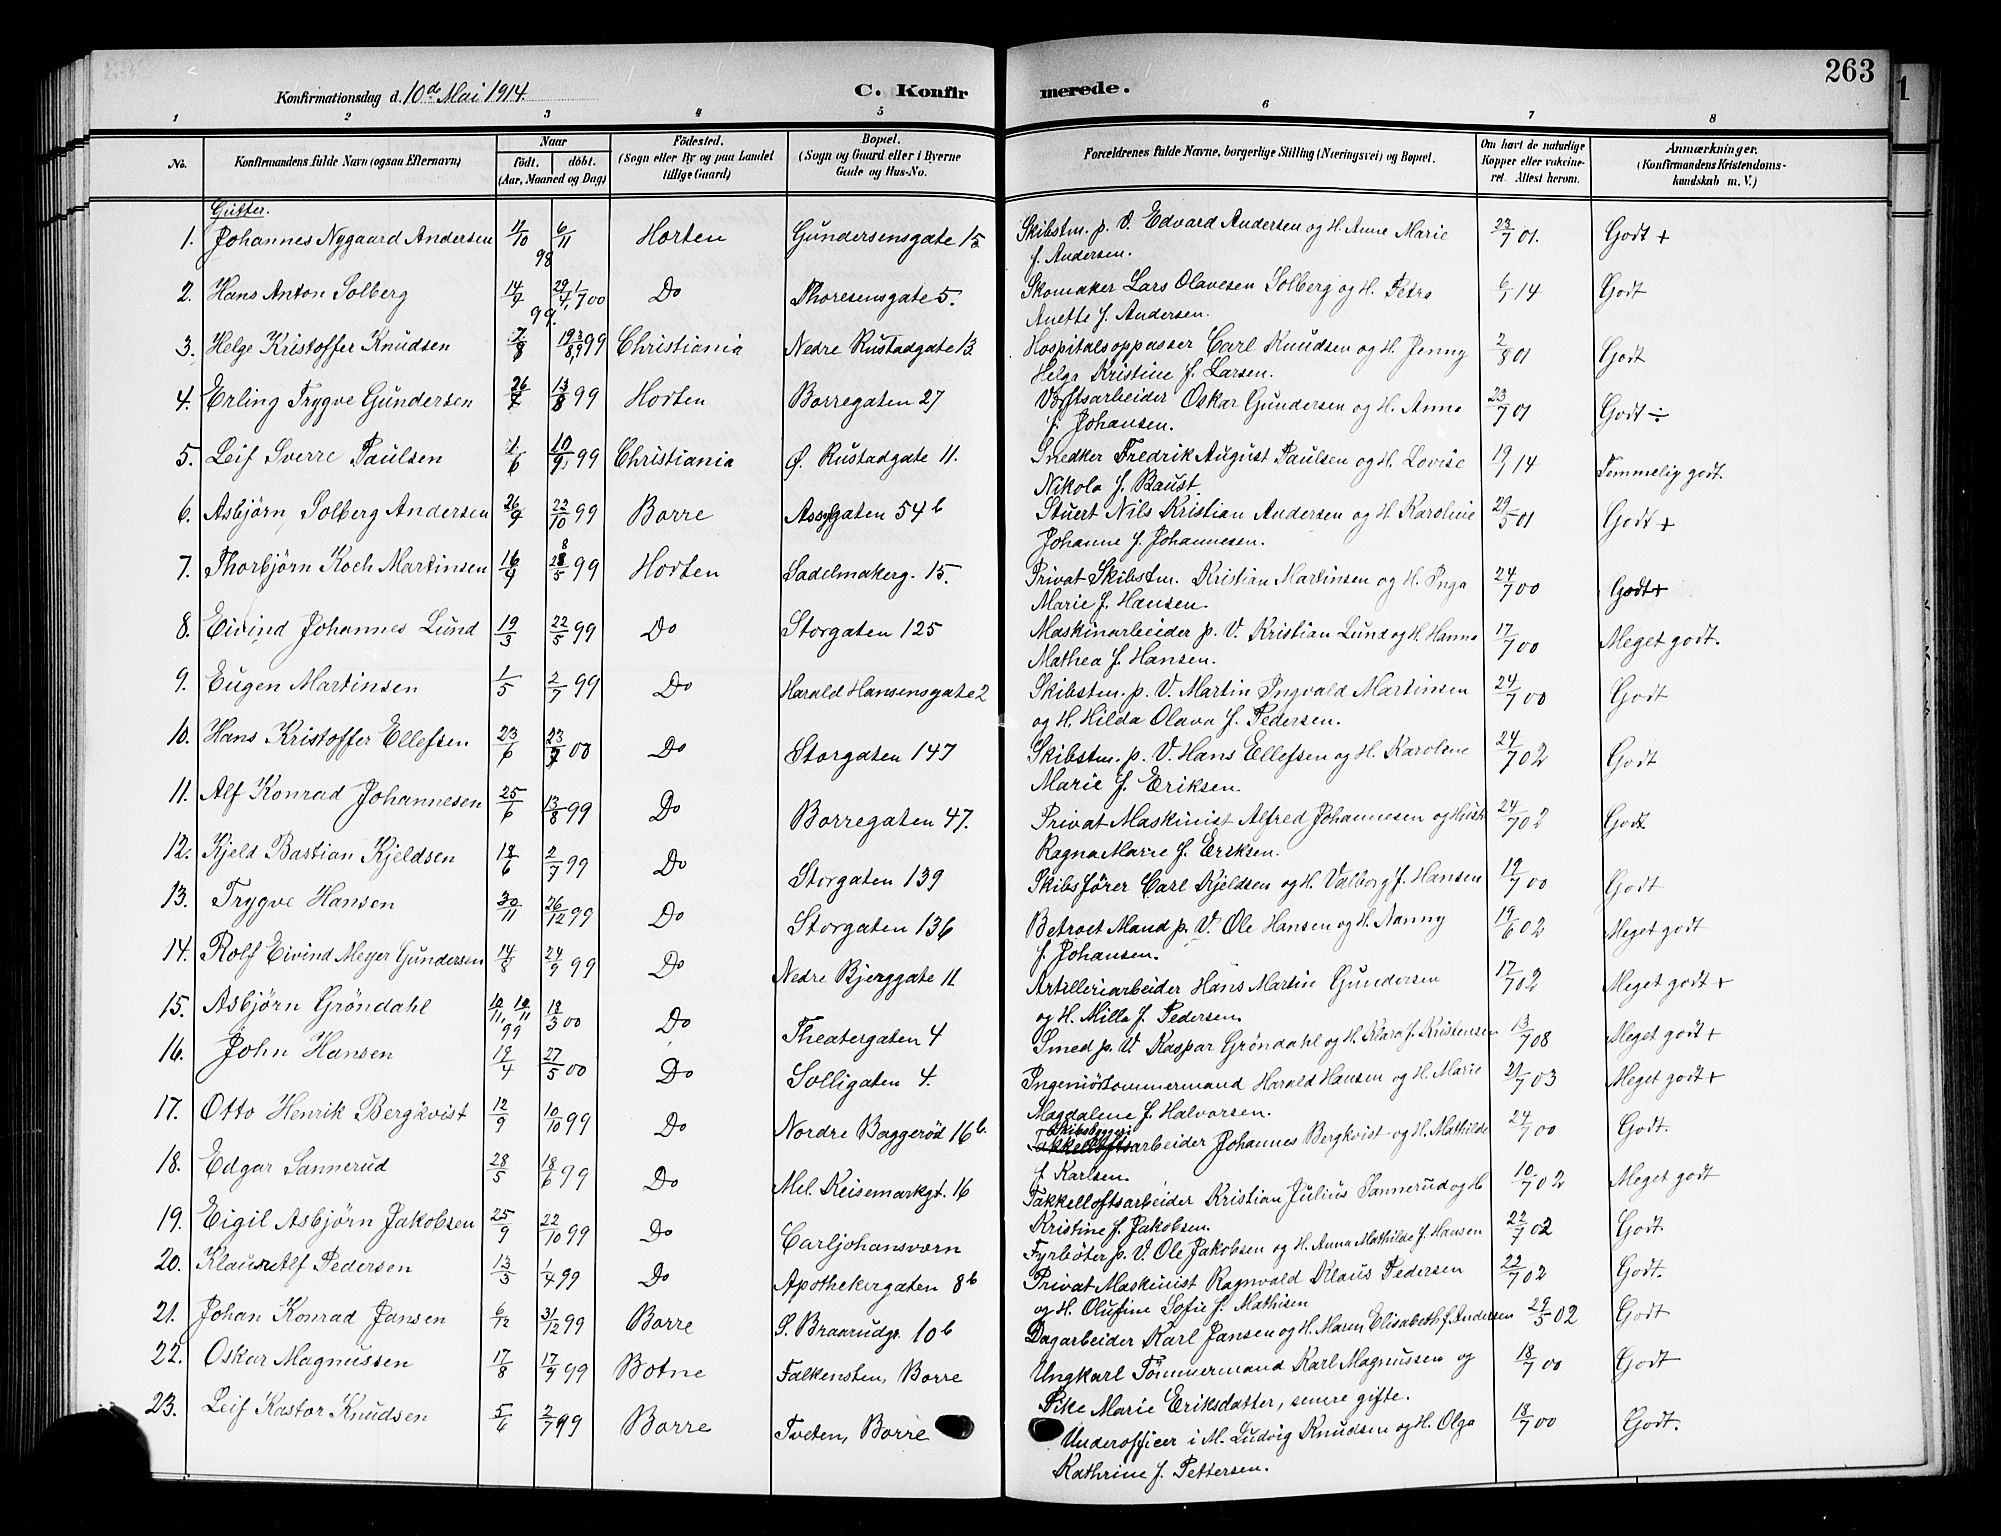 263
Konfirmationsdag d. 10de Mai 1914.
C. Konfirmerede.
1 2 3 4 5 6 7 8
No.
Konfirmandens fulde Navn (ogsaa Efternavn)
Naar
födt. döbt.
(Aar, Maaned og Dag)
Födested.
(Sogn eller By og paa Landet
tillige Gaard)
Bopæl.
(Sogn og Gaard eller i Byerne
Gade og Hus-No.
Forældrenes fulde Navne, borgerlige Stilling (Næringsvei) og Bopæl.
Om havt de naturlige
Kopper eller vakcine-
ret. Attest herom.
Anmærkninger.
(Konfirmandens Kristendoms-
kundskab m. V.)
Gutter.
1. Johannes Nygaard Andersen 11/10 98 6/11 Horten Gundersensgate 15 Skibstm. p. V. Edvard Andersen og H. Anne Marie 23/7 01. Godt +
f. Andersen.
2. Hans Anton Solberg 14/7 99. 29/4, 1/7 00 Do Thoresensgate 5. Skomaker Lars Olavesen Solberg og H. Petra 6/1 14 Godt
Anette f. Andersen.
3. Helge Kristoffer Knudsen 7/8 99 Christiania Nedre Rustadgate 13 Hospitalsoppasser Carl Knudsen og H. Jenny 2/8 01 Godt
Helga Kristine f. Larsen.
4. Erling Trygve Gundersen 26/7 13/8 99 Horten Borregaten 27 Værftsarbeider Oskar Gundersen og H. Anna 23/7 01 Godt ÷
f. Johansen.
5. Leif Sverre Paulsen 1/6 10/9, 99 Christiania Ø. Rustadgate 11. Snedker Fredrik August Paulsen og H. Lovise 19/1 14 Temmelig godt.
Nikola f. Baust
6. Asbjörn Solberg Andersen 26/9 22/10 99 Borre Assylgaten 54 b Stuert Nils Kristian Andersen og H. Karoline 29/5 01 Godt +
Johanne f. Johannesen.
7. Thorbjörn Koch Martinsen 16/4 28/5 99 Horten Sadelmakerg. 15. Privat Skibstm. Kristian Martinsen og H. Inga 24/7 00 Godt+
Marie f. Hansen.
8. Eivind Johannes Lund 19/3 22/5 99 Do Storgaten 125 Maskinarbeider p. V. Kristian Lund og H. Hanna 17/7 00 Meget godt.
Mathea f. Hansen.
9. Eugen Martinsen 1/5 2/7 99 Do Harald Hansensgate 2 Skibstm. p. V. Martin Ingvald Martinsen 24/7 00 Godt
og H. Hilda Olava f. Pedersen.
10. Hans Kristoffer Ellefsen 23/6 23/7 00 Do Storgaten 147 Skibstm. p. V. Hans Ellefsen og H. Karoline 24/7 02 Godt
Marie f. Eriksen.
11. Alf Konrad Johannesen 25/6 13/8 99 Do Borregaten 47. Privat Maskinist Alfred Johannesen og Hustr 24/7 02 Godt
Ragna Marie f. Eriksen.
12. Kjeld Bastian Kjeldsen 18/6 2/7 99 Do Storgaten 139 Skibsförer Carl Kjeldsen og H. Valborg f. Hansen 19/7 00 Godt
13. Trygve Hansen 30/11 26/12 99 Do Storgaten 136 Betroet Mand p. V. Ole Hansen og H. Nanny 19/6 02 Meget godt
f. Johansen.
14. Rolf Eivind Meyer Gundersen 14/8 24/9 99 Do Nedre Bjerggate 11 Artilleriarbeider Hans Martin Gundersen 17/7 02 Meget godt +
og H. Milla f. Pedersen.
15. Asbjörn Gröndahl 10/11, 10/11 99 18/3 00 Do Theatergaten 4 Smed p. V. Kaspar Gröndahl og H. Klara f. Kristensen 13/7 08 Meget godt +
16. John Hansen 19/4 27/5 00 Do Solligaten 4. Ingeniörtommermand Harald Hansen og H. Marie 21/7 03 Meget godt +
Magdalene f. Halvorsen.
17. Otto Henrik Bergkvist 12/9 10/10 99 Do Nordre Baggeröd 16 b. Skibsbyggeriarbeider Johannes Bergkvist og H. Mathilde 24/7 00 Godt.
f Karlsen.
18. Edgar Sannerud 28/5 18/6 99 Do Mel. Keisemarkgt. 16 Takkelloftsarbeider Kristian Julius Sannerud og H 10/7 02 Meget godt
Kristine f. Jakobsen.
19. Eigil Asbjörn Jakobsen 25/9 22/10 99 Do Carljohansværn Fyrböter p. V. Ole Jakobsen og H. Anna Mathilde f. Hansen 22/7 02 Godt
20. Klaus Alf Pedersen 13/3 1/4 99 Do Apothekergaten 8 b Privat Maskinist Ragnvald Klaus Pedersen 22/7 02 Godt.
og H. Olufine Sofie f. Mathisen
21. Johan Konrad Jansen 6/12 31/12 99 Borre S. Braarudgt. 10 b Dagarbeider Karl Jansen og H. Maren Elisabeth f. Andersen 29/5 02 Godt
22. Oskar Magnussen 17/8 17/9 99 Botne Falkensten, Borre Ungkarl Tömmermand Karl Magnussen og 18/7 00 Godt
Pike Marie Eriksdatter, senere gifte.
23. Leif Kastor Knudsen 5/6 2/7 99 Borre Tveten, Borre Underofficer i M. Ludvig Knudsen og H. Olga 18/7 00 Godt.
Kathrine f. Pettersen.